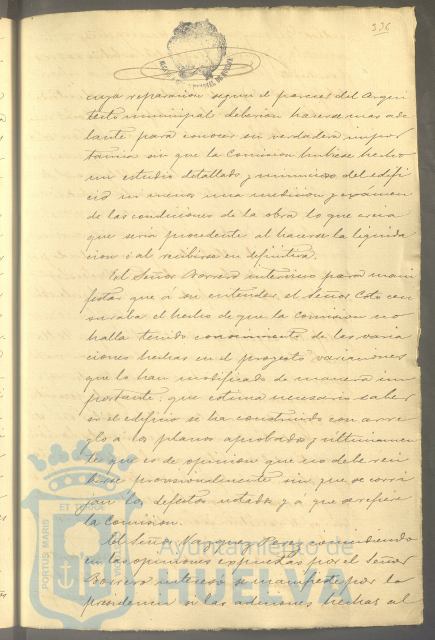 336
cuya reparacion segun el parecer del Arqui
tecto municipal deberian hacerse mas ade
lante para conocer su verdadera impor
tancia sin que la Comision hubiese hecho
un estudio detallado y minucioso del edifi
cio ni menos una medicion y exámen
de las condiciones de la obra lo que creia
que seria procedente al hacerse la liquida
cion ó al recibirse en definitiva.
El Señor Borrero intervino para mani
festar que á su entender el Señor Coto cen
suraba el hecho de que la Comision no
halla tenido conocimiento de las varia
ciones hechas en el proyecto, variaciones
que lo han modificado de manera im
portante: que estima necesario saber
si el edificio se ha construido con arre
glo á los planos aprobados y ultimamen
te que es de opinion que no debe reci
birse provisionalmente sin que se corri
jan los defectos notados y á que se refiere
la Comision.
El Señor Vazquez Perez coincidiendo
en las opiniones expuestas por el Señor
Borrero intereso se manifieste por la
presidencia si las adiciones hechas al
PORTUS MARIS
ET TERRAE
Ayuntamiento de
HUELVA